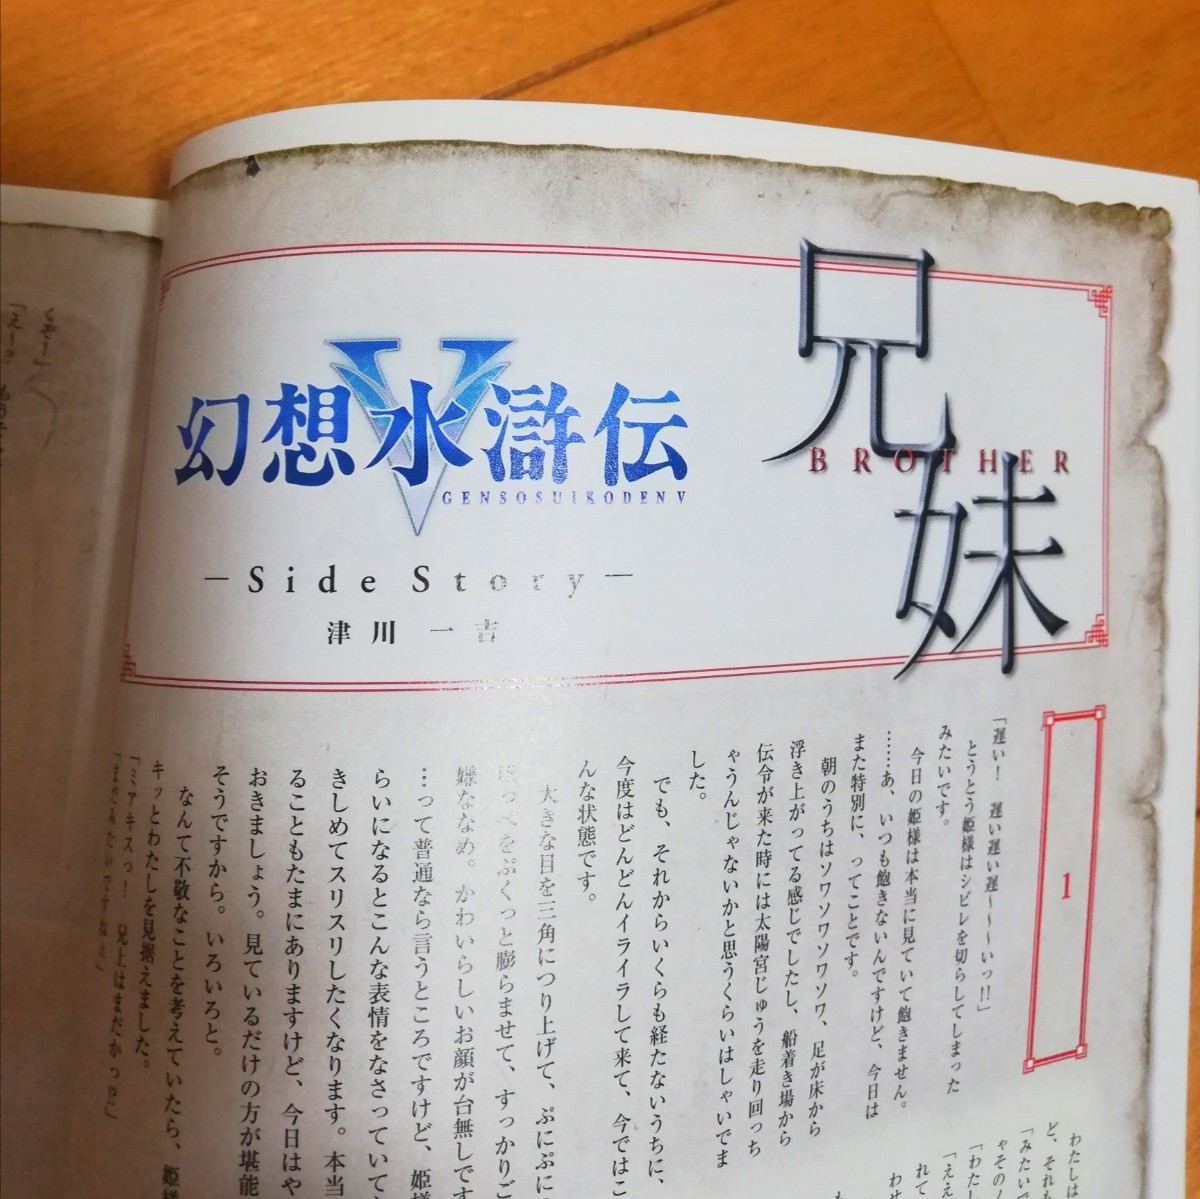 兄妹
BROTHER
幻想水滸伝
V
GENSOSUIKODEN V
―Side Story―
津川 一吉
1
「遅い! 遅い遅い遅~~~いっ!!」
とうとう姫様はシビレを切らしてしまった
みたいです。
今日の姫様は本当に見ていて飽きません。
……あ、いつも飽きないんですけど、今日は
また特別に、ってことです。
朝のうちはソワソワソワソワ、足が床から
浮き上がってる感じでしたし、船着き場から
伝令が来た時には太陽宮じゅうを走り回っち
ゃうんじゃないかと思うくらいはしゃいでま
した。
でも、それからいくらも経たないうちに、
今度はどんどんイライラして来て、今ではこ
んな状態です。
大きな目を三角につり上げて、ぷにぷに
っぺをぷくっと膨らませて、すっかりご
嫌ななめ。かわいらしいお顔が台無しです
…って普通なら言うところですけど、姫様
らいになるとこんな表情をなさっていて
きしめてスリスリしたくなります。本当
ることもたまにありますけど、今日はや
おきましょう。見ているだけの方が堪能
そうですから。いろいろと。
なんて不敬なことを考えていたら、姫様
キッとわたしを見据えました。
「ミアキスっ! 兄上はまだかっ!?」
「まだみたいですねぇ」
わたしは
ど、それ
「みたいで
ゃその
「わたし
「ええ
れて
わせ
も
くぞー」
「えー?